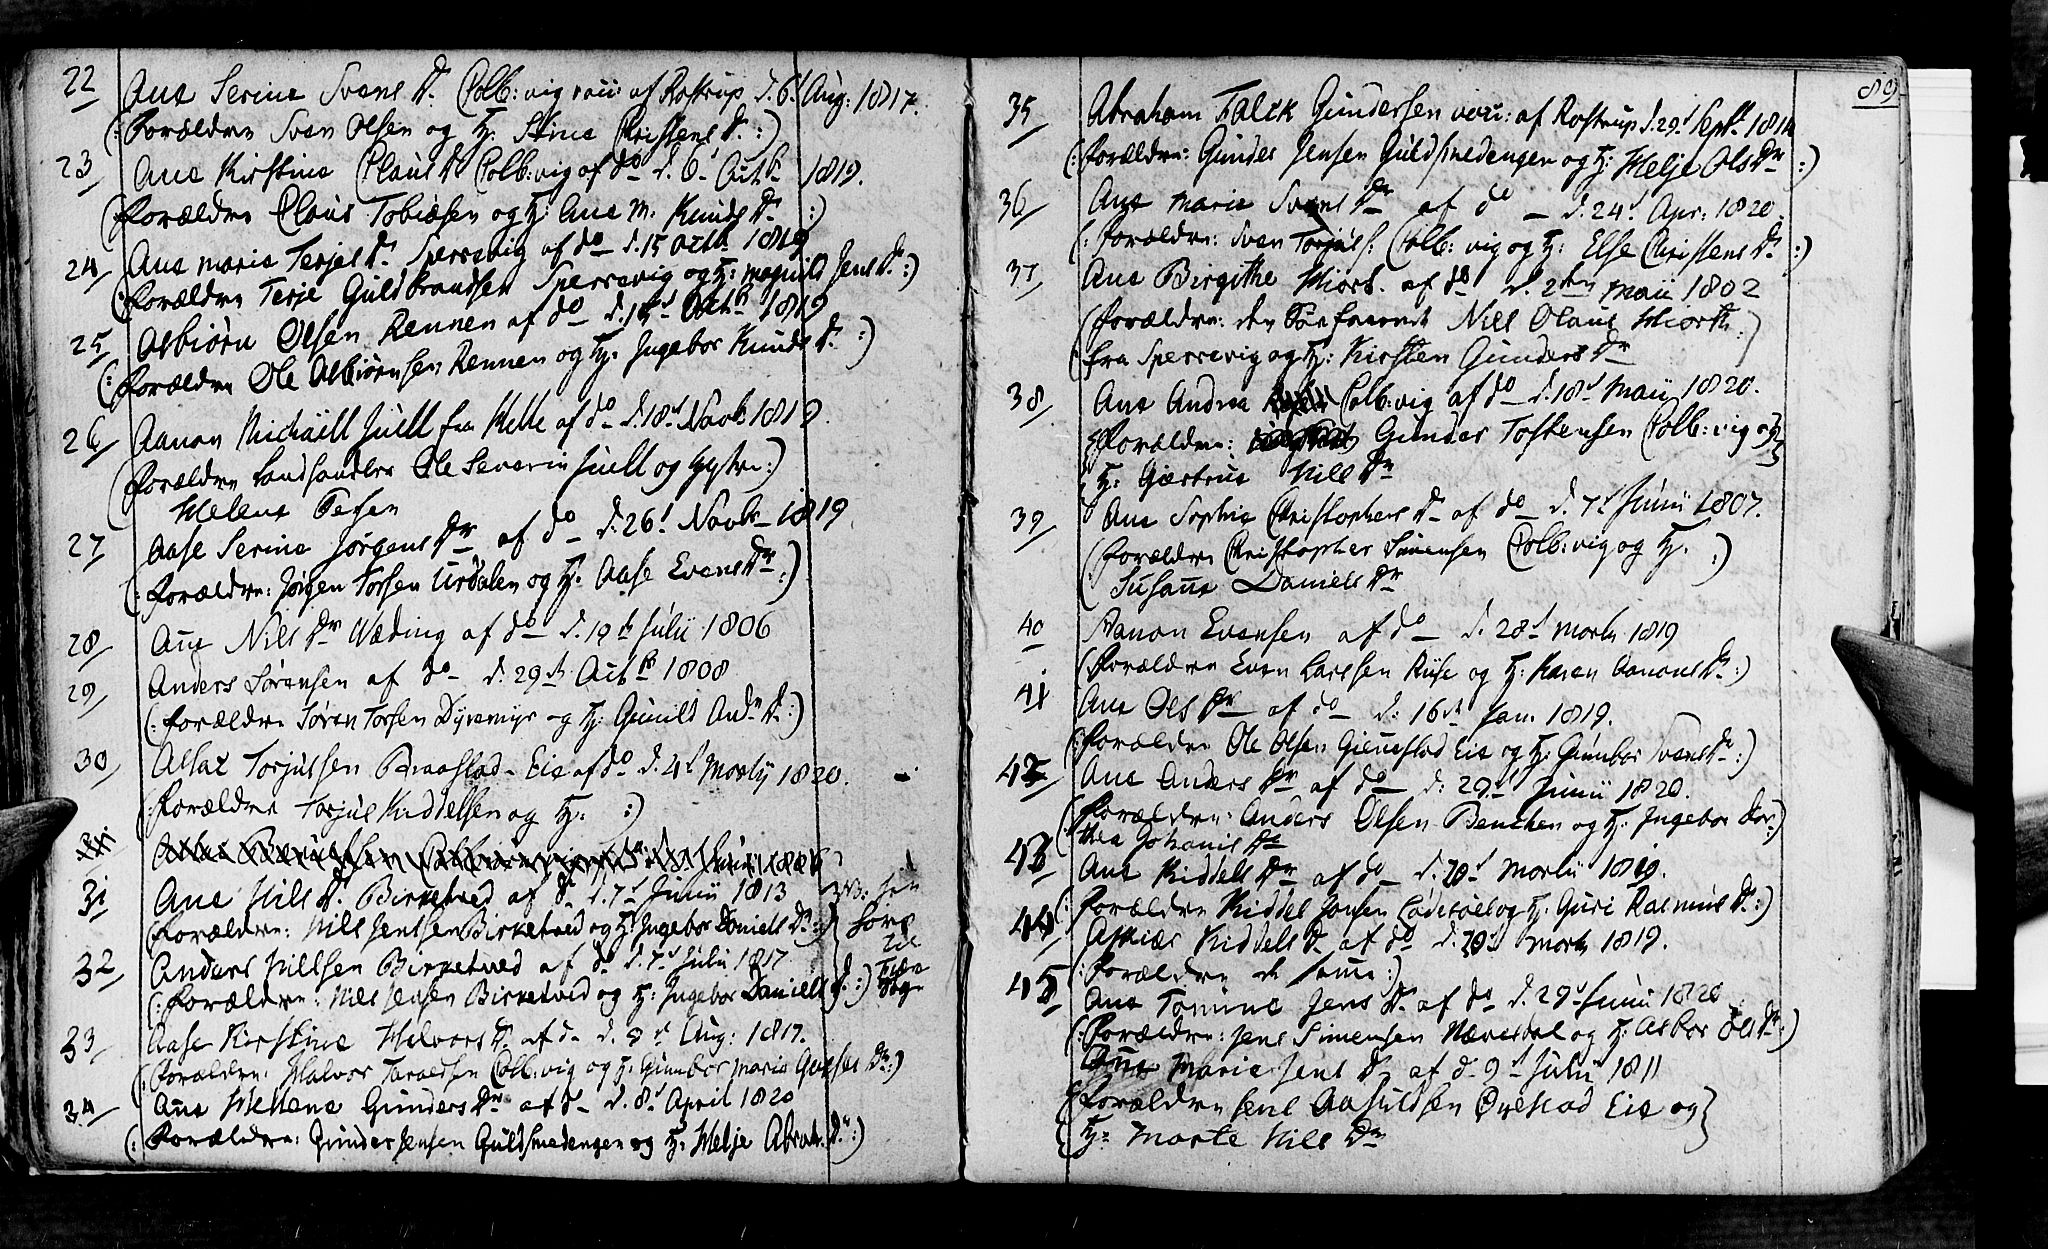 22 Ane Serine Svens Dr. Colb:vig af Rostrup d. 6t Aug: 1817.
(: Forældre Sven Olsen og H: Stine Christens Dr. :)
23 Ane Kirstine Claus Dr Colb:vig af do d. 6t Octb 1819.
(: Forældre Claus Tobiasen og H: Ane M. Knuds Dr :)
24 Ane Marie Terjes Dr. Sperrevig af do d. 15 Octb 1819
(: Forældre Terje Guldbrandsen Sperrevig og H: Magnild Jens Dr. :)
25 Asbiørn Olsen Rennen af do d. Octb 1819
(: Forældre Ole Asbiørnsen Rennen og H: Ingebor Knuds Dr. :)
26 Aanon Michaill Juell fra Helle af do d. 18t Novb 1819.
(: Forældre Landhandler Ole Severin Juell og Hustru :)
Helene
27 Aase Serine Jørgens Dr af do d. 26t Novb 1819
(: Forældre: Jørgen Torsen Urdalen og H: Aase Evens Dr. :)
28 Ane Nils Dr Wæding af do d. 19de Julii 1806
29 Anders Sørensen af do d. 29de Octb 1808
(: Forældre Søren Torsen Dyremyr og H: Gunild And: Dr. :)
30 Aslax Torjussen Braastad-Eie af do d. 4t Martij 1820.
(: Forældre Torjus Kiddelsen og H: :)
31 Ane Nils Dr. Birketved af do d. 7t Junii 1813
(: Forældre: Nils Jensen Birketved og H: Ingebor Daniels Dr. :)
32 Anders Nilssen Birketved af do d. 7t Julii 1817
(: Forældre: Nils Jensen Birketved og H: Ingebor Daniels Dr. :)
33 Aase Kirstine Halvors Dr. af do d. 8t Aug: 1817.
(: Forældre: Halvor Taraldsen Colb:vig og H: Gunbor Marie Dr. :)
34 Ane Hellene Gunders Dr af do d. 8t April 1820
(: Forældre: Gunder Jensen Guldsmedengen og H: Helje Abrah. Dr. :)
89
35 Abraham Falck Gundersen af Rostrup d. 29t Septb 1814
(: Forældre: Gunder Jensen Guldsmedengen og H: Helje Ols Dr :)
36 Ane Marie Svens Dr af do d. 24t Apr: 1820.
(: Forældre: Sven Torjus: Colb:vig og H: Else Christens Dr. :)
37 Ane Birgithe Hiort. af do d. 2den Maii 1802
(: Forældre: den Niels Olaus Hiorth :)
fra Sperrevig og H: Kirsten Gunders Dr
38 Ane Andrea Colb:vig af do d. 18t Maii 1820.
Forældre: Gunder Tostensen Colb:vig og
H: Giertrue Nills Dr
39 Ane Sophie Christophers Dr af do d. 7t Junii 1807.
(: Forældre Christopher Simensen Colb:vig og H. :)
Susane Daniels Dr
40 Aanon Evensen af do d. 28t Martii 1819
(: Forældre Even Larssen og H: Karen Aanons Dr. :)
41 Ane Ols Dr af do d. 16de Jan. 1819.
(: Forældre Ole Olsen Eie og H: Gunbor Svens Dr :)
42 Ane Anders Dr af do d: 29t Junii 1820.
(: Forældre: Anders Olsen Benchen og H: Ingebor Dor:)
thea Johanis Dr
43 Ane Kiddels Dr af do d. Martii 1819.
(: Forældre Kiddel Jensen og H: Guri Rasmus Dr. :)
44 Kiddels Dr af do d. Martii 1819.
(: Forældre de samme :)
45 Ane Tomine Jens Dr. af do d. 29t Junii 1820
(: Forældre: Jens Simensen og H: Asbor Ols Dr :)
Ane Marie Jens Dr af do 9t Julii 1811
Forældre Jens Aasuldsen Øyestad Eie og
H: Marte Nils Dr